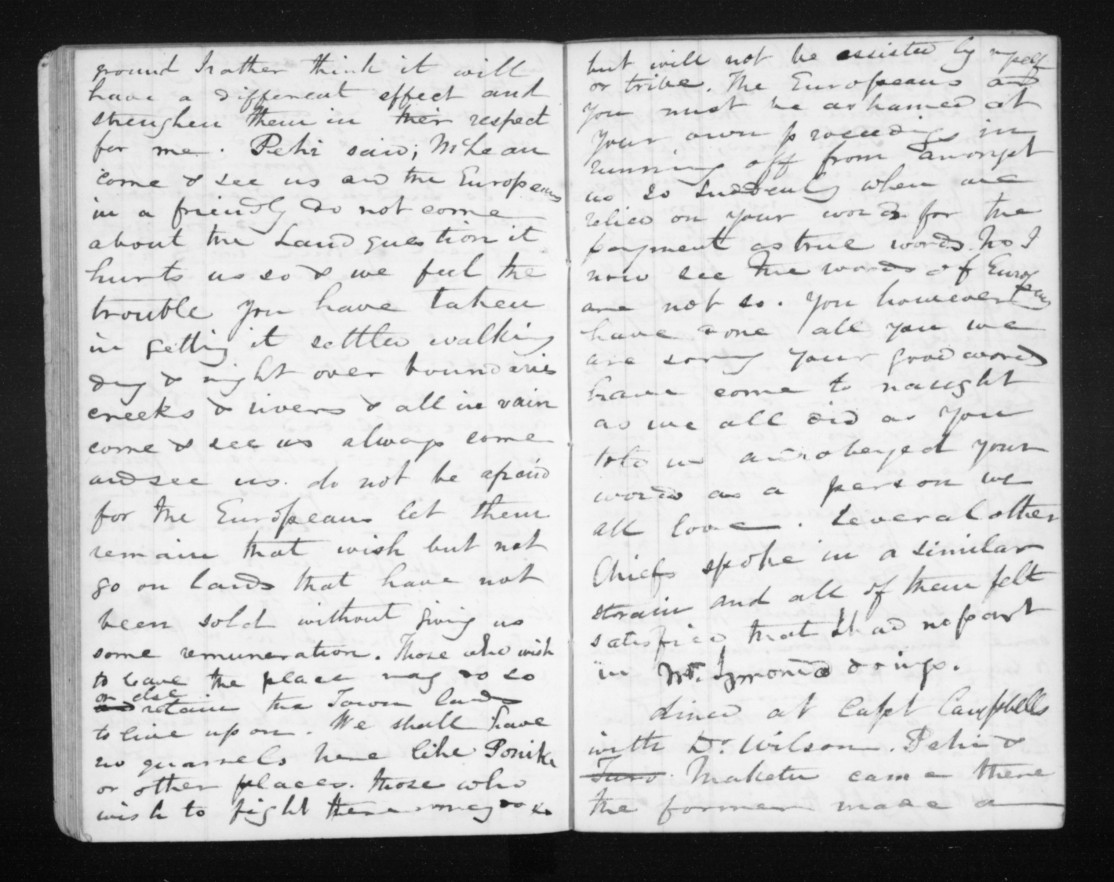 ground I rather think it will
have a different effect and
strenghen them in ther respect
for me. Pehi said; McLean
come & see us and the Europeans
in a friendly do not come
about the Land question it
hurts us so & we feel the
trouble you have taken
in getting it settled walking
day & night over boundaries
creeks & rivers & all in vain
come & see us always come
and see us. do not be afraid
for the Europeans let them
remain that wish but not
go on lands that have not
been sold without giving us
some remuneration. Those who wish
to leave the place may do so
or else
retain the Town lands
to live upon. We shall have
no quarrels here like
or other places. those who
wish to fight there may do so
but will not be assisted by myself
or tribe. The Europeans and
you must be ashamed at
your own proceedings in
running off from amongst
us so suddenly when we
relied on your words for the
payment as true words. No I
now see the words of Europeans
are not so. You however
have done all you we
are sorry your good words
have come to naught
as we all did as you
told us and obeyed your
words as a person we
all love. Several other
Chiefs spoke in a similar
strain and all of them felt
satisfied that I had no part
in Mr. doings.
dined at Capt Campbells
with Dr. Wilson. Pehi &
Maketu came there
the former made a